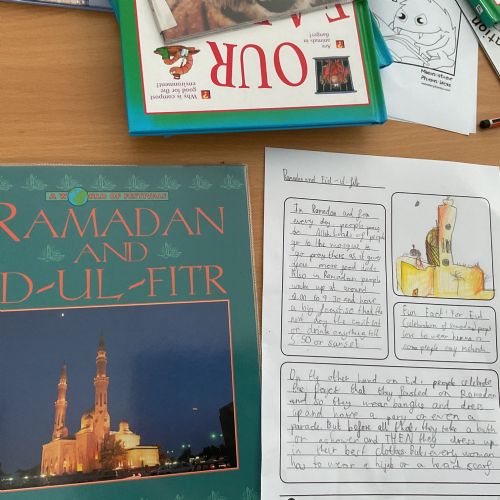 OUR
Are animals in danger?
Why is compost good for the environment?
A WORLD OF FESTIVALS
RAMADAN
AND
D-UL-FITR
Ramadan and Eid-ul-fitr
In Ramadan and for
every day people
to Allah. loads of people
go to the mosque to
go pray there as it gives
you more good
Also in Ramadan people
wake up at around
and have
a big feast so that the
next day they can't eat
or drink anything till
5:50 or sunset
Fun Fact! For Eid
Celebration of
love to wear henna
some people say
On the other hand on Eid people celebrate
the fact that they fasted on Ramadan
and so they wear bangles and dress
up and have a party or even a
parade. But before all that they take a bath
or and THEN they dress up
in their best clothes. But every woman
has to wear a hijab or a head scarf.